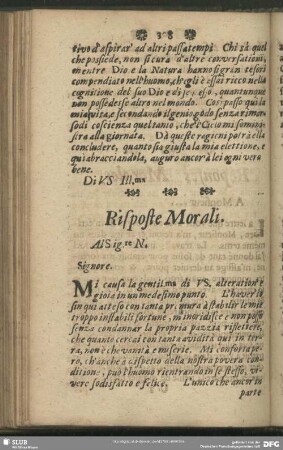 38
tivo d'aspirar' ad altri passatempi. Chi sà quel
che possiede, non si cura d'altre conversationi,
mentre Dio e la Natura hanno si gran tesori
compendiato nell'huomo, ch'egli è assai ricco nella
cognitione del suo Dio e di se stesso, quantunque
non possedesse altro nel mondo. Cosi passo qui la
mia vita, e secondando il genio godo senza rimor-
so di coscienza quel tanto, che'l Cielo mi sommi-
nistra alla giornata. Dà queste ragioni potrà ella
concludere, quanto sia giusta la mia elettione, e
qui abracciandola, auguro ancor à lei ogni vero
bene.
Di VS Ill.ma
Risposte Morali.
Al Sig.re N.
Signore.
Mi causa la gentil.ma di VS. alteration' e
gioia in un medesimo punto. L'haver li
sin qui atteso con tanta premura à stabilir le mie
troppo instabili fortune, m'inoridisce e non posso
senza condannar la propria pazzia riflettere,
che quanto cercai con tanta avidità qui in ter-
ra, non è che vanità e miserie. Mi conforta pe-
rò, ch'anche à dispetto della nostra povera con-
ditione, può l'huomo rientrando in se stesso, vi-
vere sodisfatto e felice. L'unico che ancor in
parte
SLUB
DFG